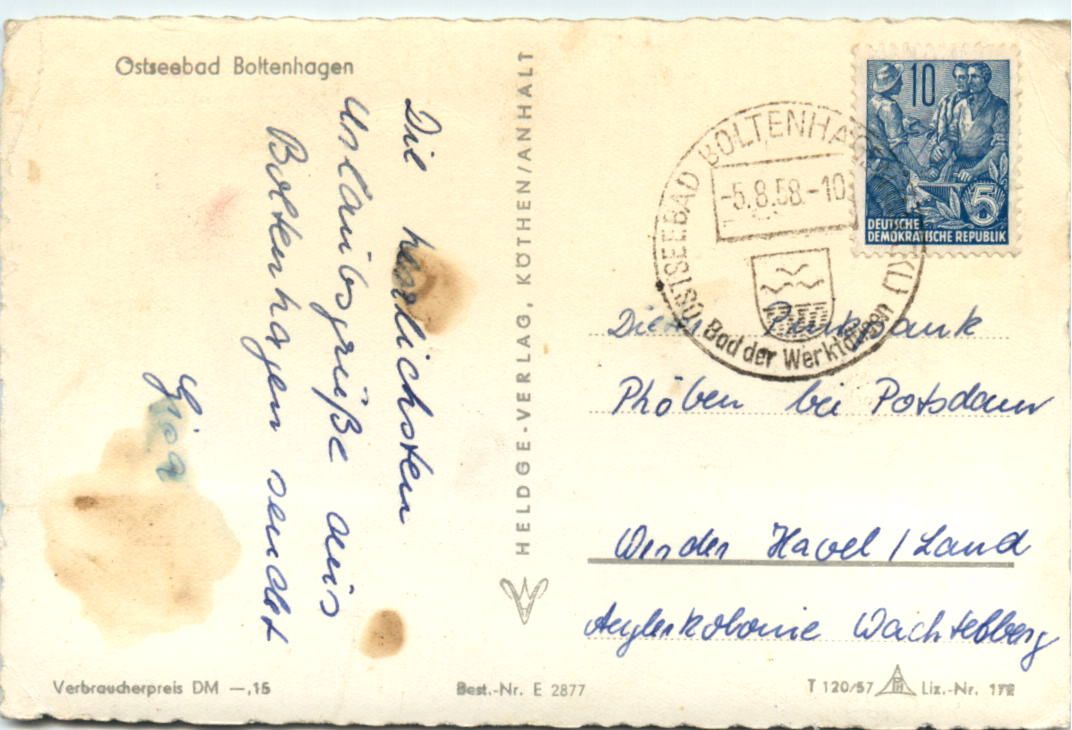 Ostseebad Boltenhagen
Die herzlichsten
Urlaubsgrüße aus
Boltenhagen sendet
HELDGE-VERLAG, KÖTHEN/ANHALT
OSTSEEBAD BOLTENHA
-5.8.58.-10
Bad der Werktätigen
10
5
DEUTSCHE
DEMOKRATISCHE REPUBLIK
Phöben bei Potsdam
Werder Havel / Land
Anglerkolonie Wachtelberg
Verbraucherpreis DM —,15
Best.-Nr. E 2877
T 120/57 Liz.-Nr.